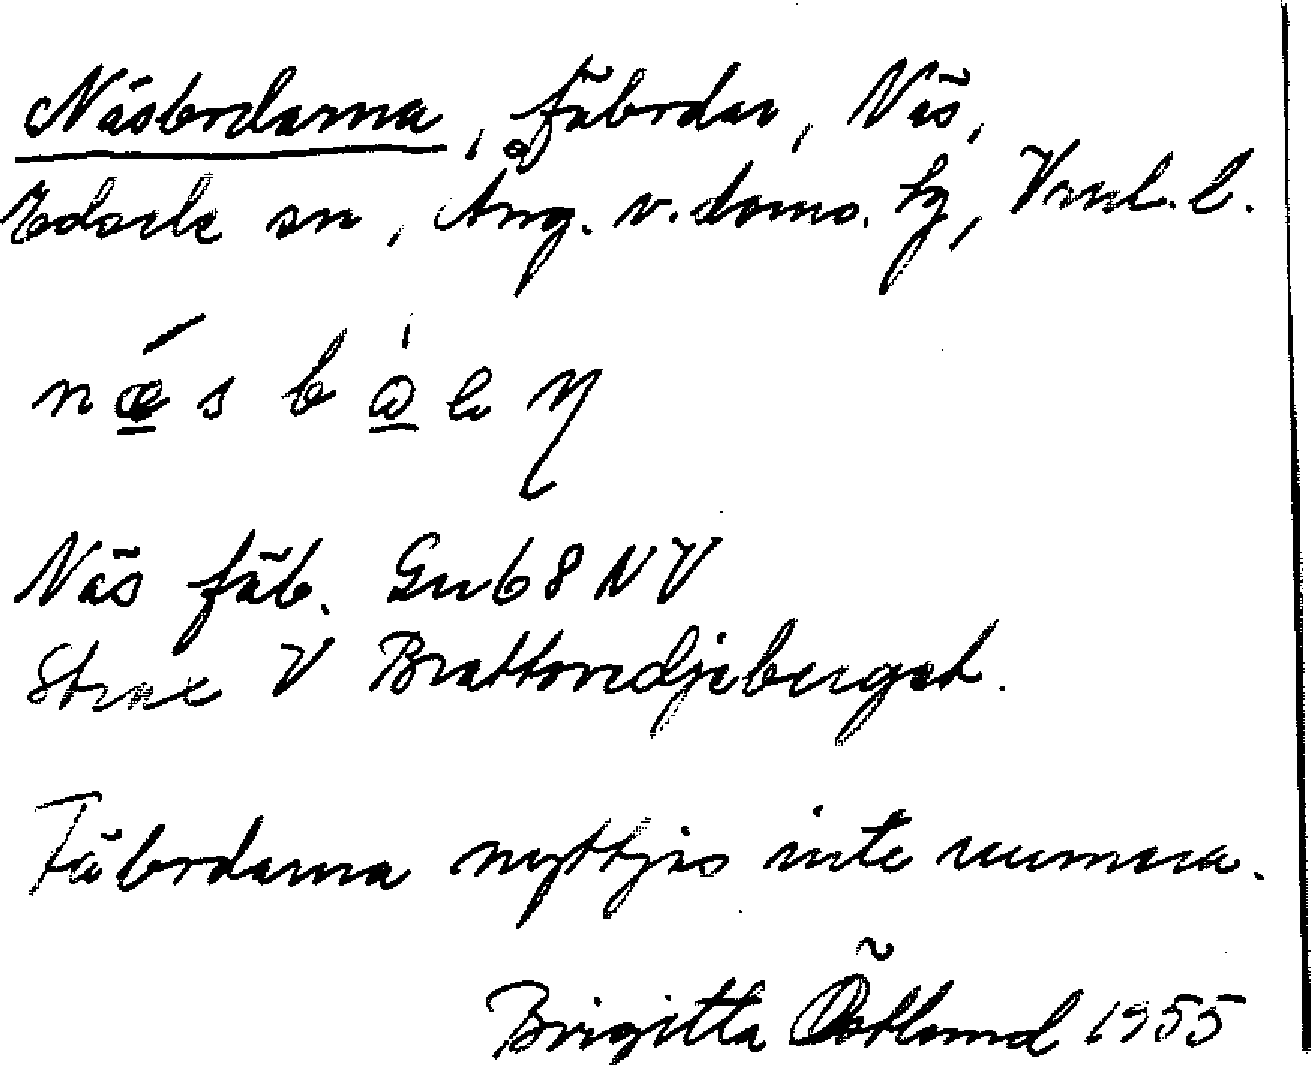 Näsbodarna, fäbodar, Näs,
Edsele sn, Ång. v. doms. tg, Vnl. l.
Näs fäb. Gub 8 NV
Strax V Brattovdjeberget.
Fäbodarna nyttjas inte numera.
Birgitta Östlund 1955